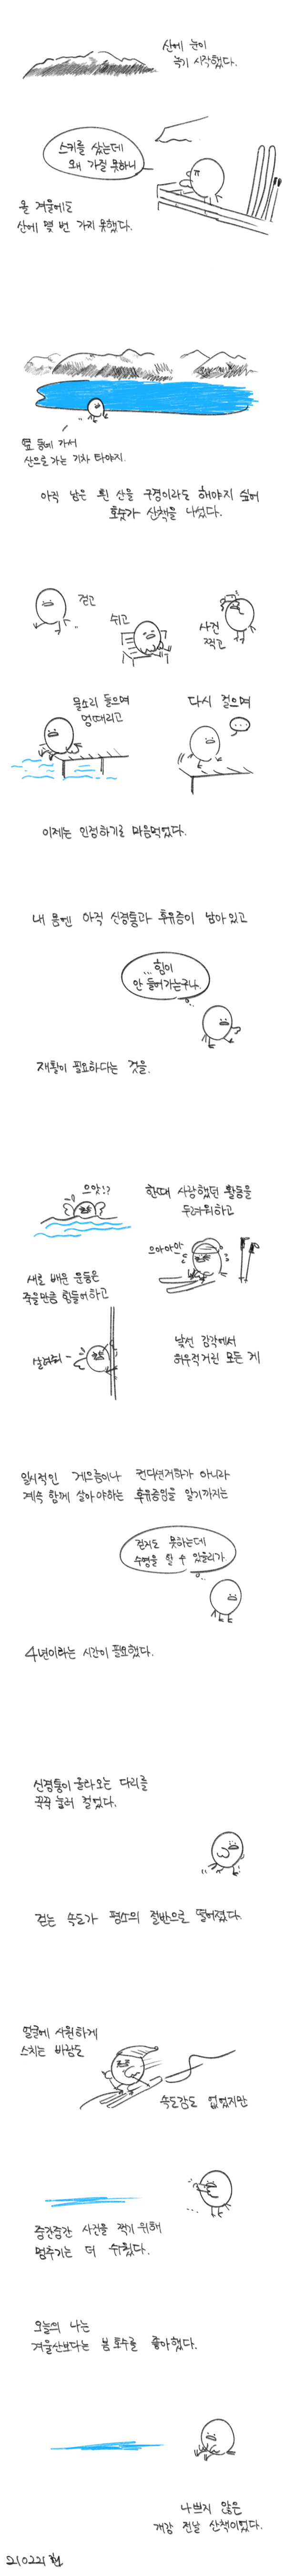 산에 눈이
녹기 시작했다.
스키를 샀는데
왜 가질 못하니
올 겨울에도
산에 몇 번 가지 못했다.
옆 동네 가서
산으로 가는 기차 타야지.
아직 남은 흰 산을 구경이라도 해야지 싶어
호숫가 산책을 나섰다.
걷고
쉬고
사진
찍고
물소리 들으며
멍때리고
다시 걸으며
...
이제는 인정하기로 마음먹었다.
내 몸엔 아직 신경통과 후유증이 남아있고
...힘이
안 들어가는구나.
재활이 필요하다는 것을.
으앗!?
한때 사랑했던 활동을
두려워하고
으아아안
새로 배운 운동은
죽을만큼 힘들어하고
살려줘-
낯선 감각에서
허우적거린 모든 게
일시적인 게으름이나 컨디션저하가 아니라
계속 함께 살아야하는 후유증임을 알기까지는
걷지도 못하는데
수영을 할 수 있을리가.
4년이라는 시간이 필요했다.
신경통이 올라오는 다리를
꾹꾹 눌러 걸었다.
걷는 속도가 평소의 절반으로 떨어졌다.
얼굴에 시원하게
스치는 바람도
속도감도 없었지만
중간중간 사진을 찍기 위해
멈추기는 더 쉬웠다.
오늘의 나는
겨울산보다는 봄 호수를 좋아했다.
나쁘지 않은
개강 전날 산책이었다.
210221